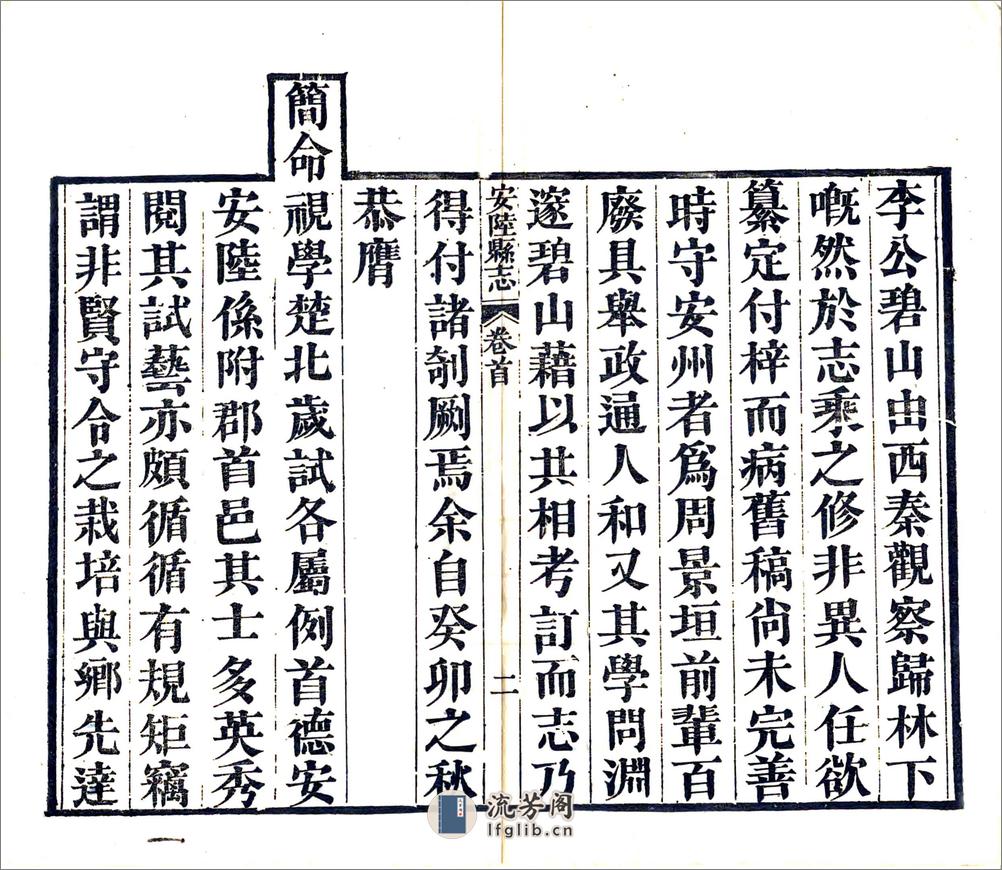 李公碧山由西秦觀察歸林下
嘅然於志乘之修非異人任欲
纂定付梓而病舊稿尚未完善
時守安州者爲周景垣前輩百
廢具舉政通人和又其學問淵
邃碧山藉以共相考訂而志乃
安陸縣志 卷首 二
得付諸剞劂焉余自癸卯之秋
恭膺
簡命視學楚北歲試各屬例首德安
安陸係附郡首邑其士多英秀
閱其試藝亦頗循循有規矩竊
謂非賢守令之栽培與鄉先達
一
流芳阁
lfglib.cn